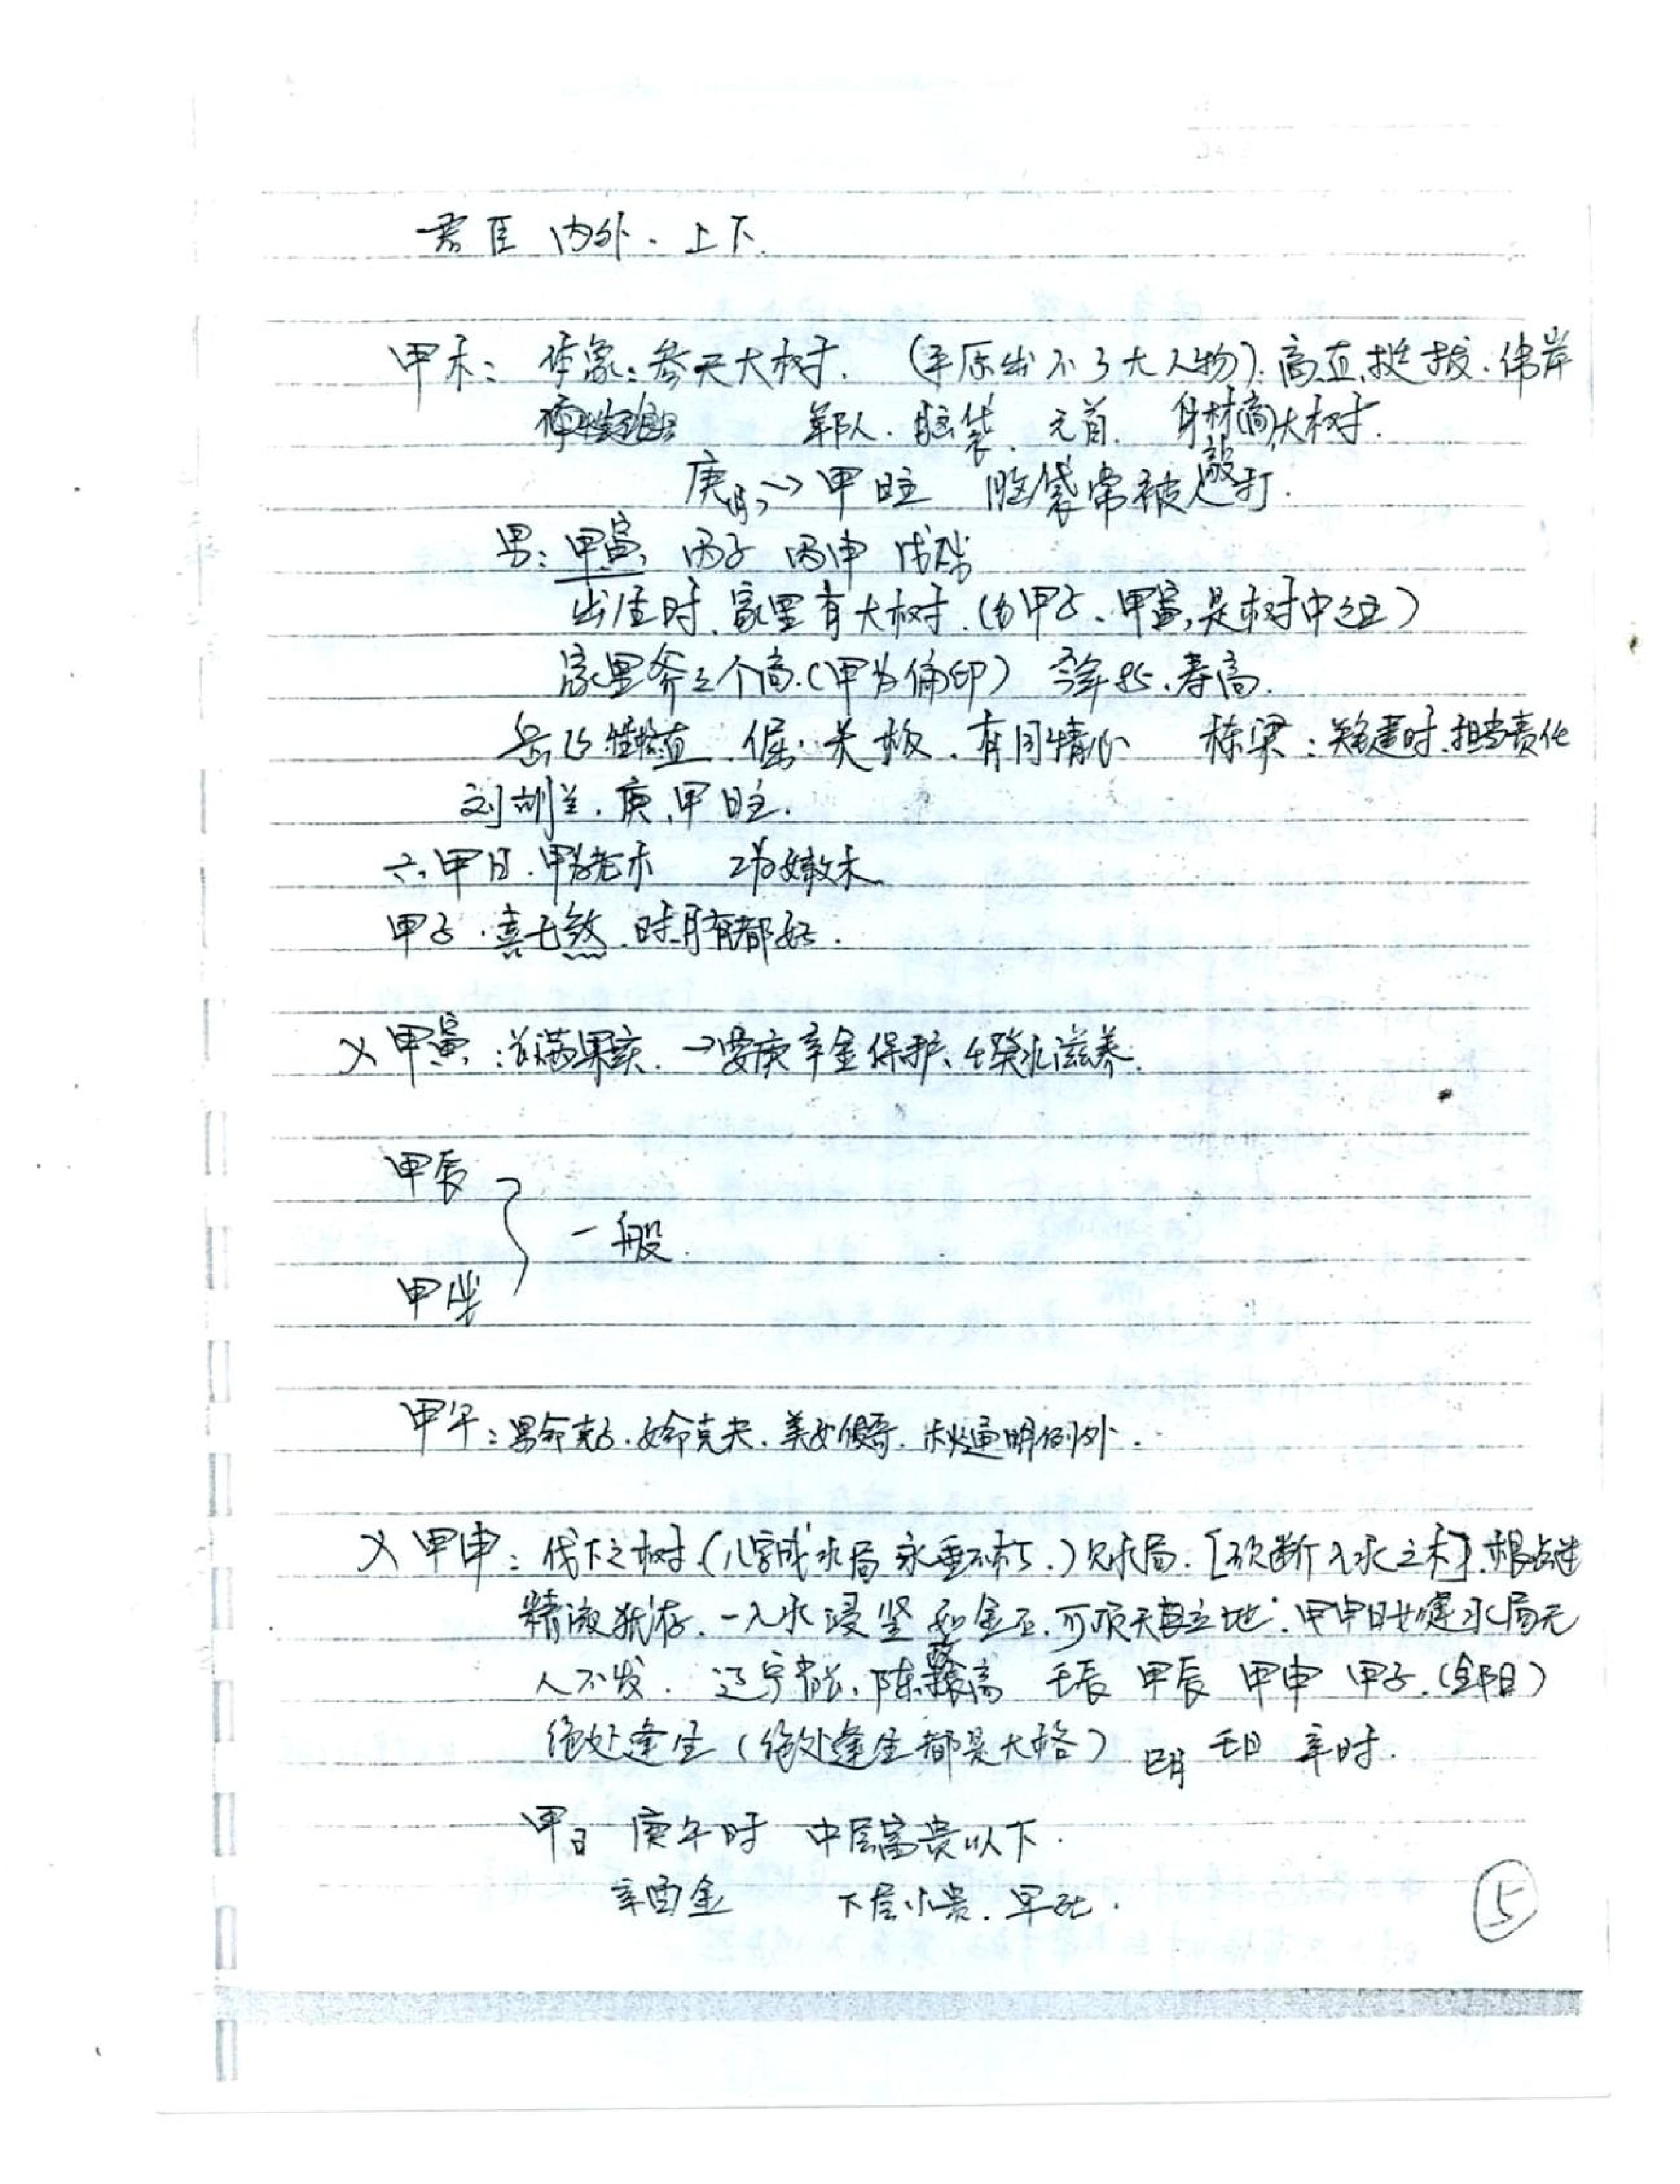 君臣 内外、上下.
甲木：体象：参天大树. (平原出不了大人物). 高直、挺拔、伟岸
军队、脑袋、元首. 身材高大树.
庚月→甲日主 脑袋常被敲打.
男：甲寅 丙子 丙申 戊戌
出生时、家里有大树.(为甲子、甲寅,是树中之王)
家里爷爷个高.(甲为偏印) 寿高.
性格直、倔、关板、有同情心 栋梁：关键时、担当责任
刘胡兰、庚、甲日主.
六甲日、甲为老木 乙为嫩木
甲子、喜七煞、时月有都好.
× 甲寅：长满果实. →要庚辛金保护、壬癸水滋养.
甲辰
一般.
甲戌
甲午：男命克子、女命克夫、美女俊哥. 木火通明例外.
× 甲申：伐下之树(八字成水局 永垂不朽.)欠水局.[砍断入水之木].根虽
精液犹存、一入水浸坚如金石、可顶天立地. 甲申日 水局无
人不发. 辽宁省长、陈政高 壬辰 甲辰 甲申 甲子.(全阳)
绝处逢生(绝处逢生都是大格) 巳月 壬日 辛时.
甲日 庚午时 中层富贵以下.
辛酉金 下层小贵. 早死.
⑤